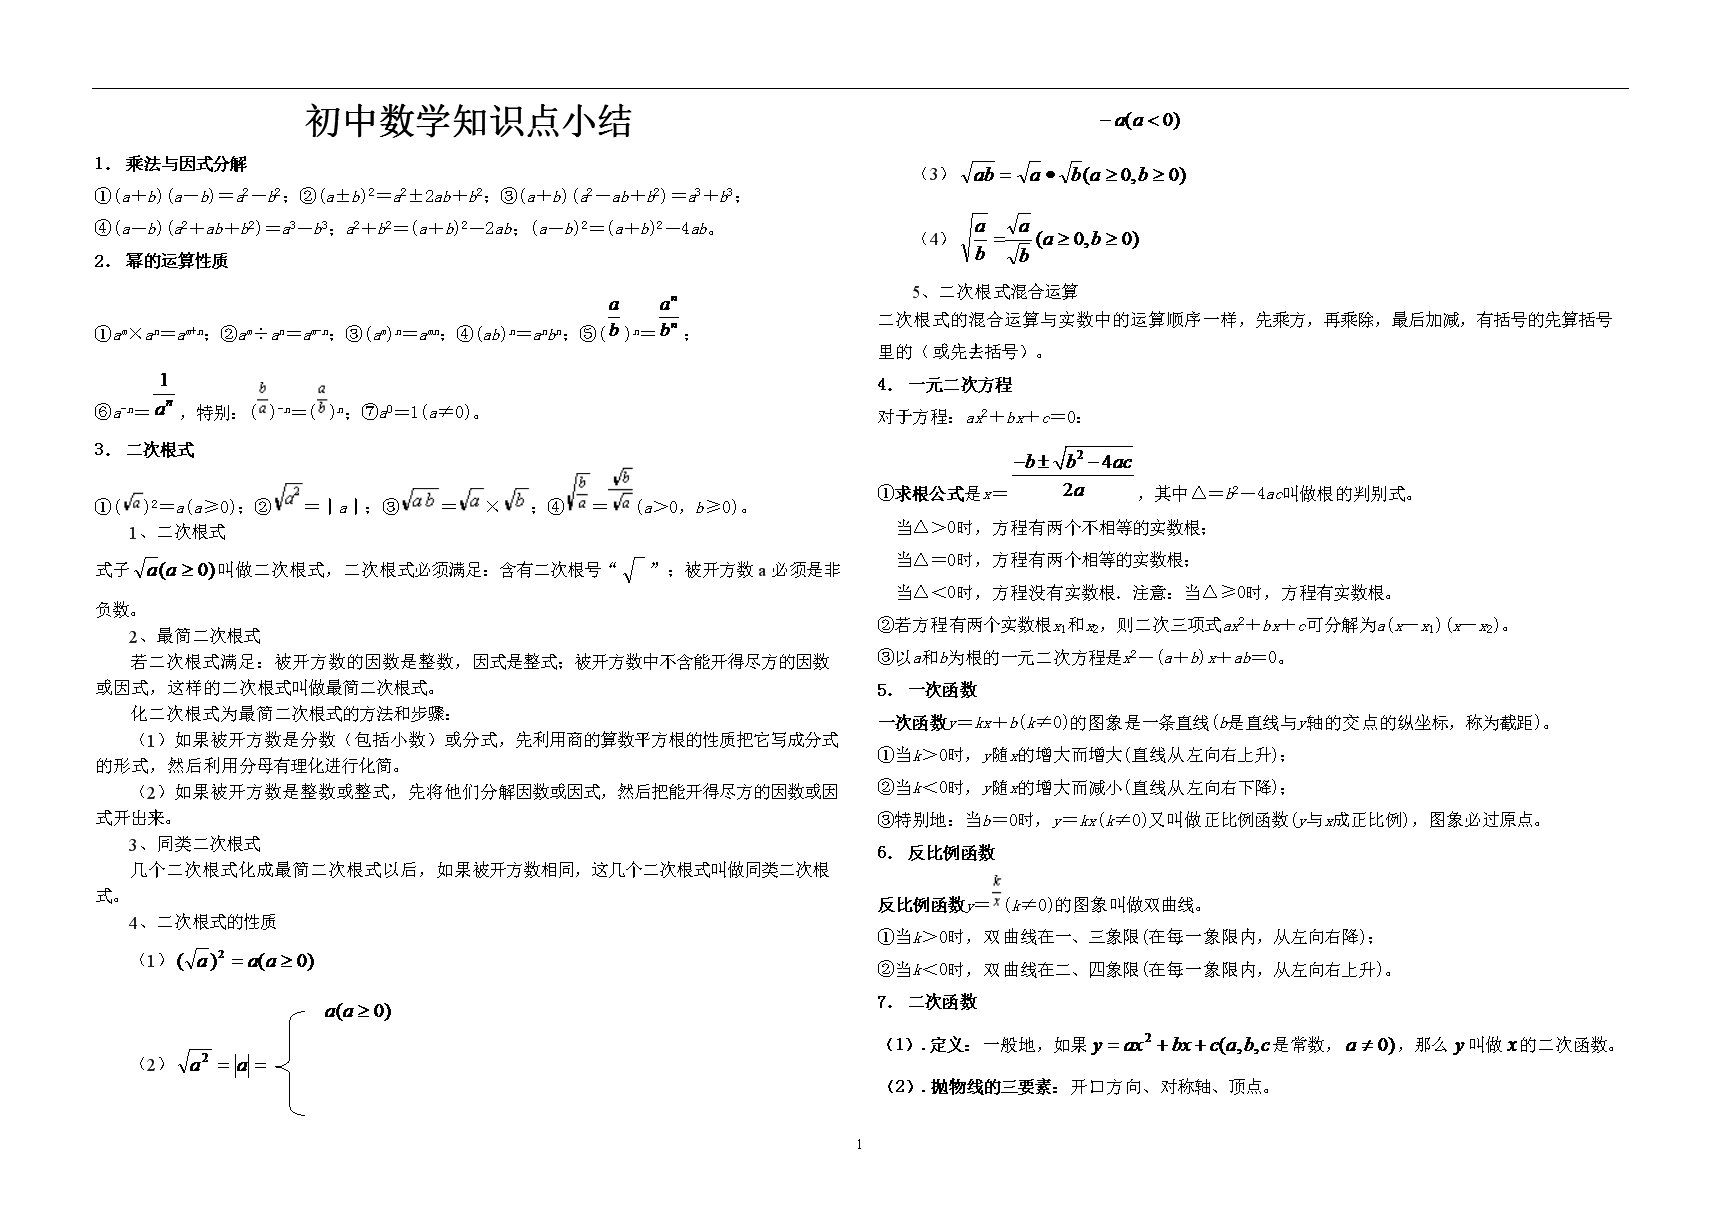 初中数学知识点小结
1. 乘法与因式分解
①(a+b)(a-b)=a²-b²;②(a±b)²=a²±2ab+b²;③(a+b)(a²-ab+b²)=a³+b³;
④(a-b)(a²+ab+b²)=a³-b³;a²+b²=(a+b)²-2ab;(a-b)²=(a+b)²-4ab。
2. 幂的运算性质
①aᵐ×aⁿ=aᵐ⁺ⁿ;②aᵐ÷aⁿ=aᵐ⁻ⁿ;③(aᵐ)ⁿ=aᵐⁿ;④(ab)ⁿ=aⁿbⁿ;⑤(a/b)ⁿ=aⁿ/bⁿ;
⑥a⁻ⁿ=1/aⁿ,特别:(b/a)⁻ⁿ=(a/b)ⁿ;⑦a⁰=1(a≠0)。
3. 二次根式
①(√a)²=a(a≥0);②√a²=丨a丨;③√ab=√a×√b;④√(b/a)=√b/√a(a>0,b≥0)。
1、二次根式
式子√a(a≥0)叫做二次根式,二次根式必须满足:含有二次根号“√ ”;被开方数a必须是非
负数。
2、最简二次根式
若二次根式满足:被开方数的因数是整数,因式是整式;被开方数中不含能开得尽方的因数
或因式,这样的二次根式叫做最简二次根式。
化二次根式为最简二次根式的方法和步骤:
(1)如果被开方数是分数(包括小数)或分式,先利用商的算数平方根的性质把它写成分式
的形式,然后利用分母有理化进行化简。
(2)如果被开方数是整数或整式,先将他们分解因数或因式,然后把能开得尽方的因数或因
式开出来。
3、同类二次根式
几个二次根式化成最简二次根式以后,如果被开方数相同,这几个二次根式叫做同类二次根
式。
4、二次根式的性质
(1)(√a)²=a(a≥0)
a(a≥0)
(2)√a²=|a|=
-a(a<0)
(3)√ab=√a•√b(a≥0,b≥0)
(4)√(a/b)=√a/√b(a≥0,b≥0)
5、二次根式混合运算
二次根式的混合运算与实数中的运算顺序一样,先乘方,再乘除,最后加减,有括号的先算括号
里的(或先去括号)。
4. 一元二次方程
对于方程:ax²+bx+c=0:
①求根公式是x=(-b±√(b²-4ac))/2a,其中△=b²-4ac叫做根的判别式。
当△>0时,方程有两个不相等的实数根;
当△=0时,方程有两个相等的实数根;
当△<0时,方程没有实数根.注意:当△≥0时,方程有实数根。
②若方程有两个实数根x₁和x₂,则二次三项式ax²+bx+c可分解为a(x-x₁)(x-x₂)。
③以a和b为根的一元二次方程是x²-(a+b)x+ab=0。
5. 一次函数
一次函数y=kx+b(k≠0)的图象是一条直线(b是直线与y轴的交点的纵坐标,称为截距)。
①当k>0时,y随x的增大而增大(直线从左向右上升);
②当k<0时,y随x的增大而减小(直线从左向右下降);
③特别地:当b=0时,y=kx(k≠0)又叫做正比例函数(y与x成正比例),图象必过原点。
6. 反比例函数
反比例函数y=k/x(k≠0)的图象叫做双曲线。
①当k>0时,双曲线在一、三象限(在每一象限内,从左向右降);
②当k<0时,双曲线在二、四象限(在每一象限内,从左向右上升)。
7. 二次函数
(1).定义:一般地,如果y=ax²+bx+c(a,b,c是常数,a≠0),那么y叫做x的二次函数。
(2).抛物线的三要素:开口方向、对称轴、顶点。
1